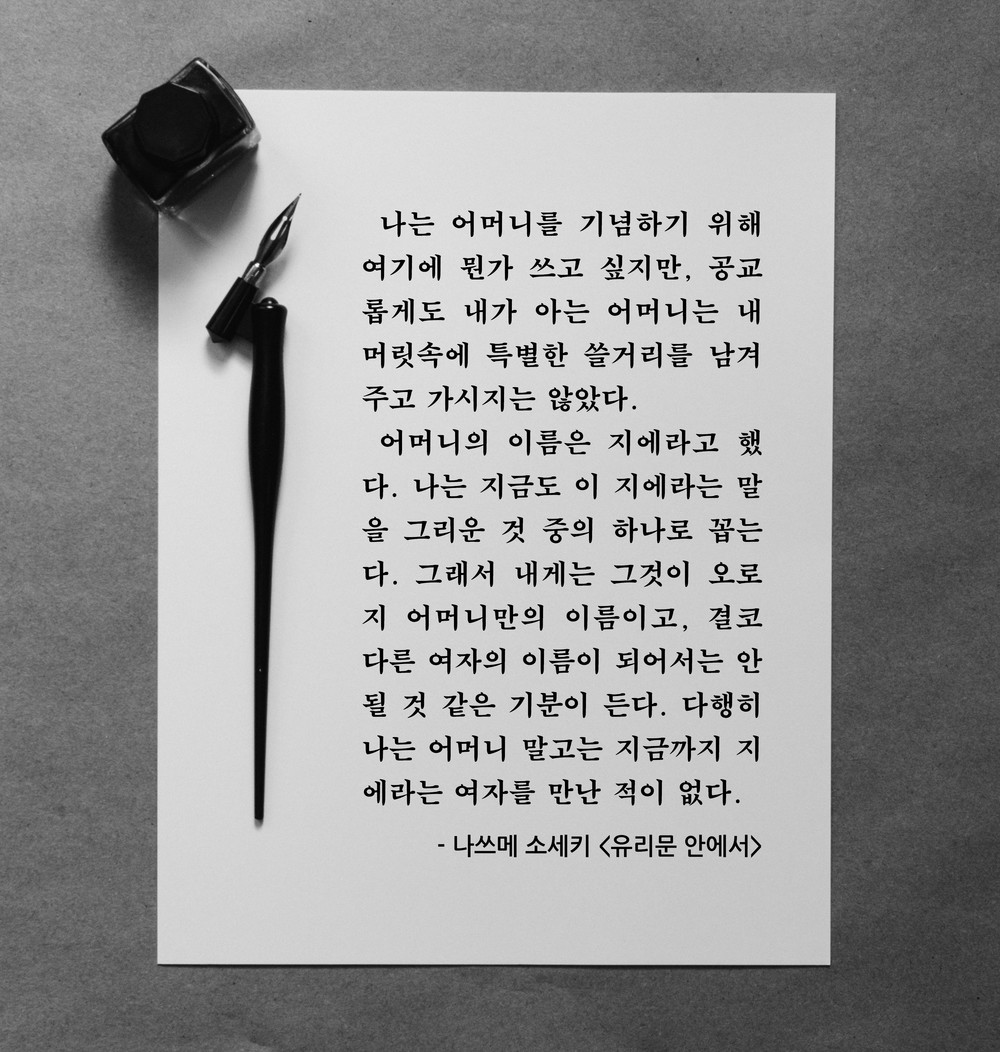 나는 어머니를 기념하기 위해
여기에 뭔가 쓰고 싶지만, 공교
롭게도 내가 아는 어머니는 내
머릿속에 특별한 쓸거리를 남겨
주고 가시지는 않았다.
어머니의 이름은 지에라고 했
다. 나는 지금도 이 지에라는 말
을 그리운 것 중의 하나로 꼽는
다. 그래서 내게는 그것이 오로
지 어머니만의 이름이고, 결코
다른 여자의 이름이 되어서는 안
될 것 같은 기분이 든다. 다행히
나는 어머니 말고는 지금까지 지
에라는 여자를 만난 적이 없다.
- 나쓰메 소세키 <유리문 안에서>